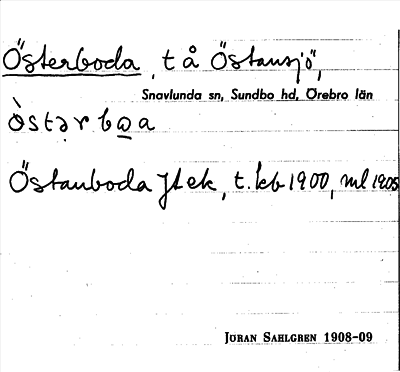 Österboda, t å Östansjö,
Snavlunda sn, Sundbo hd, Örebro län
òstər bɷa
Östanboda Jlek, t. kb 1900, ml 1905
JÖRAN SAHLGREN 1908-09